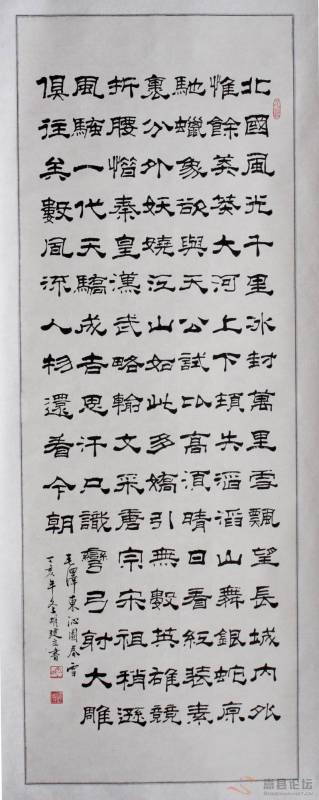 北國風光千里冰封萬里雪飄望長城内外
惟餘莽莽大河上下頓失滔滔山舞銀蛇原
馳蠟象欲與天公試比高須晴日看紅裝素
裹分外妖嬈江山如此多嬌引無數英雄競
折腰惜秦皇漢武略輸文采唐宗宋祖稍遜
風騷一代天驕成吉思汗只識彎弓射大雕
俱往矣數風流人物還看今朝
毛澤東沁園春雪
丁亥年冬胡建立書
嵩县论坛